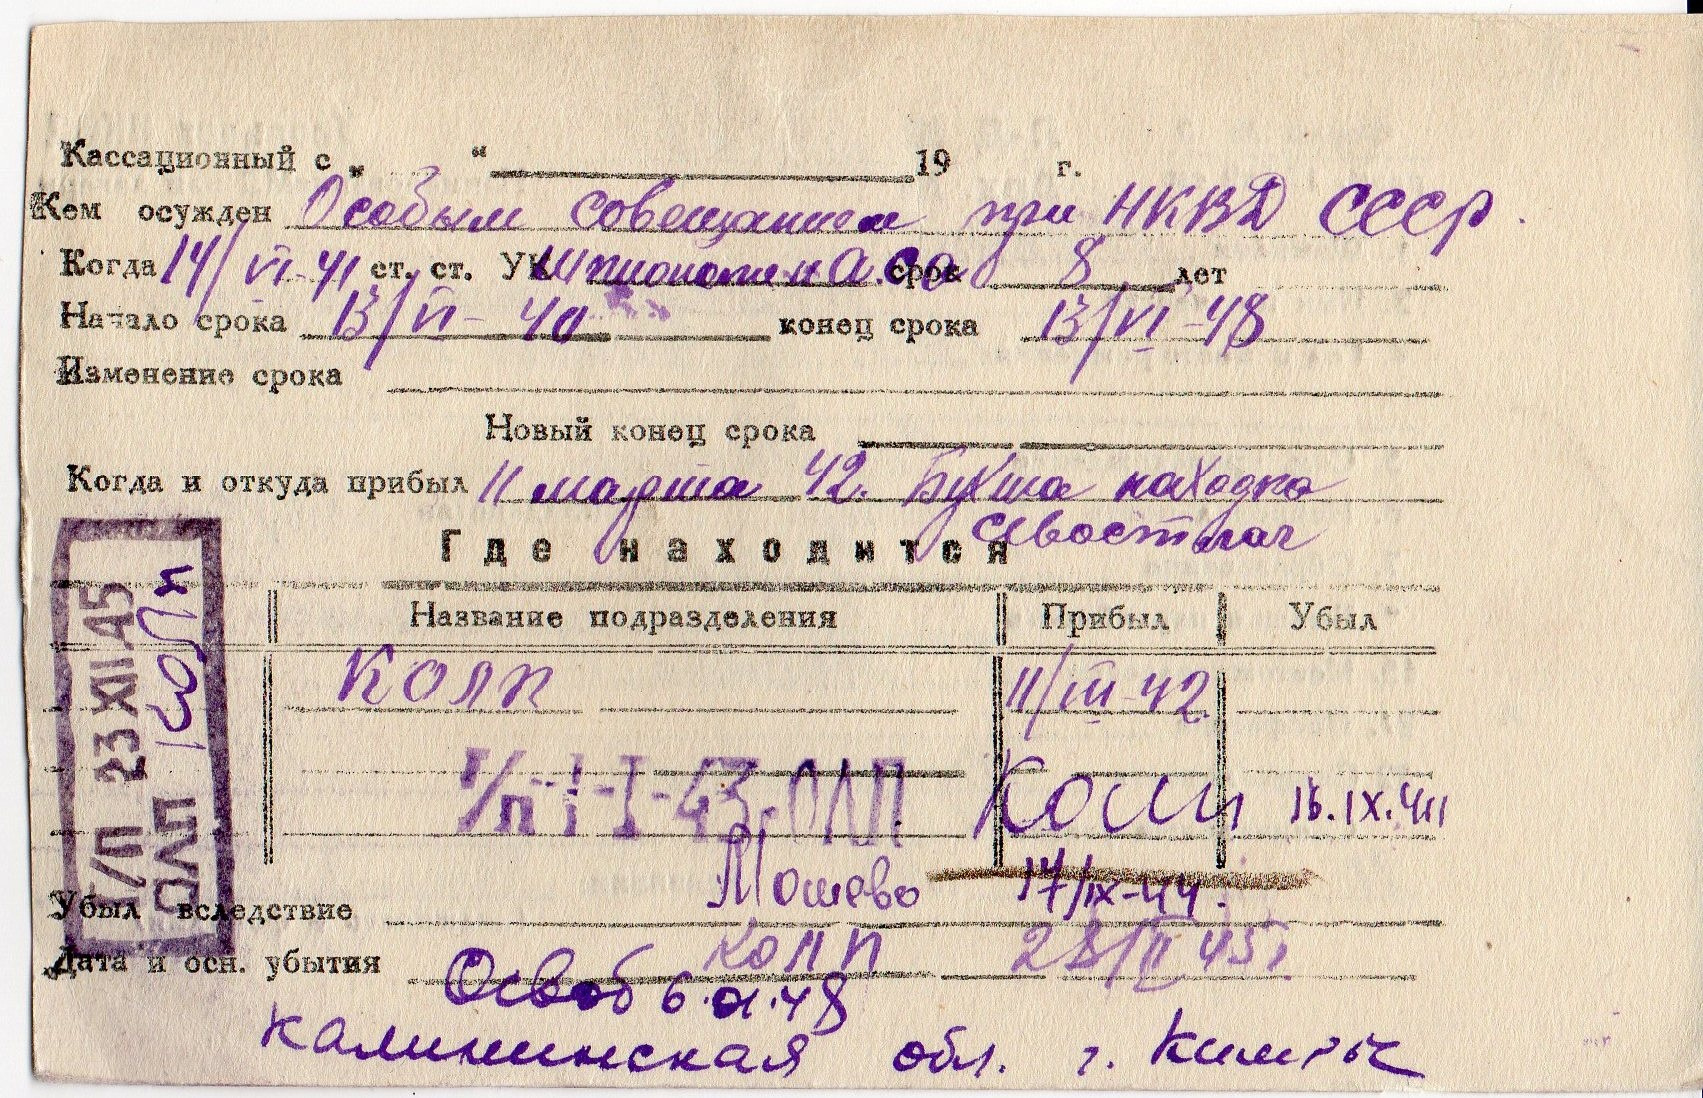 Кассационный с „ “ 19 г.
Кем осужден Особым совещанием при НКВД СССР.
Когда 14/VI-41 ст. ст. УК срок 8 лет
Начало срока 13/VI-40 конец срока 13/VI-48
Изменение срока
Новый конец срока
Когда и откуда прибыл 11 марта 42. Бухта находка
Севостлаг
Где находится
Название подразделения Прибыл Убыл
КОЛП 11/III-42
У/П-1-I-43.ОЛП 16.IX.44
Мошево 17/IX-44.
Убыл вследствие
КОЛП 28/II 45г.
Дата и осн. убытия
Освоб 6.01.48
Калининская обл. г. Кимры
У/П 23 XII 45
ОЛП